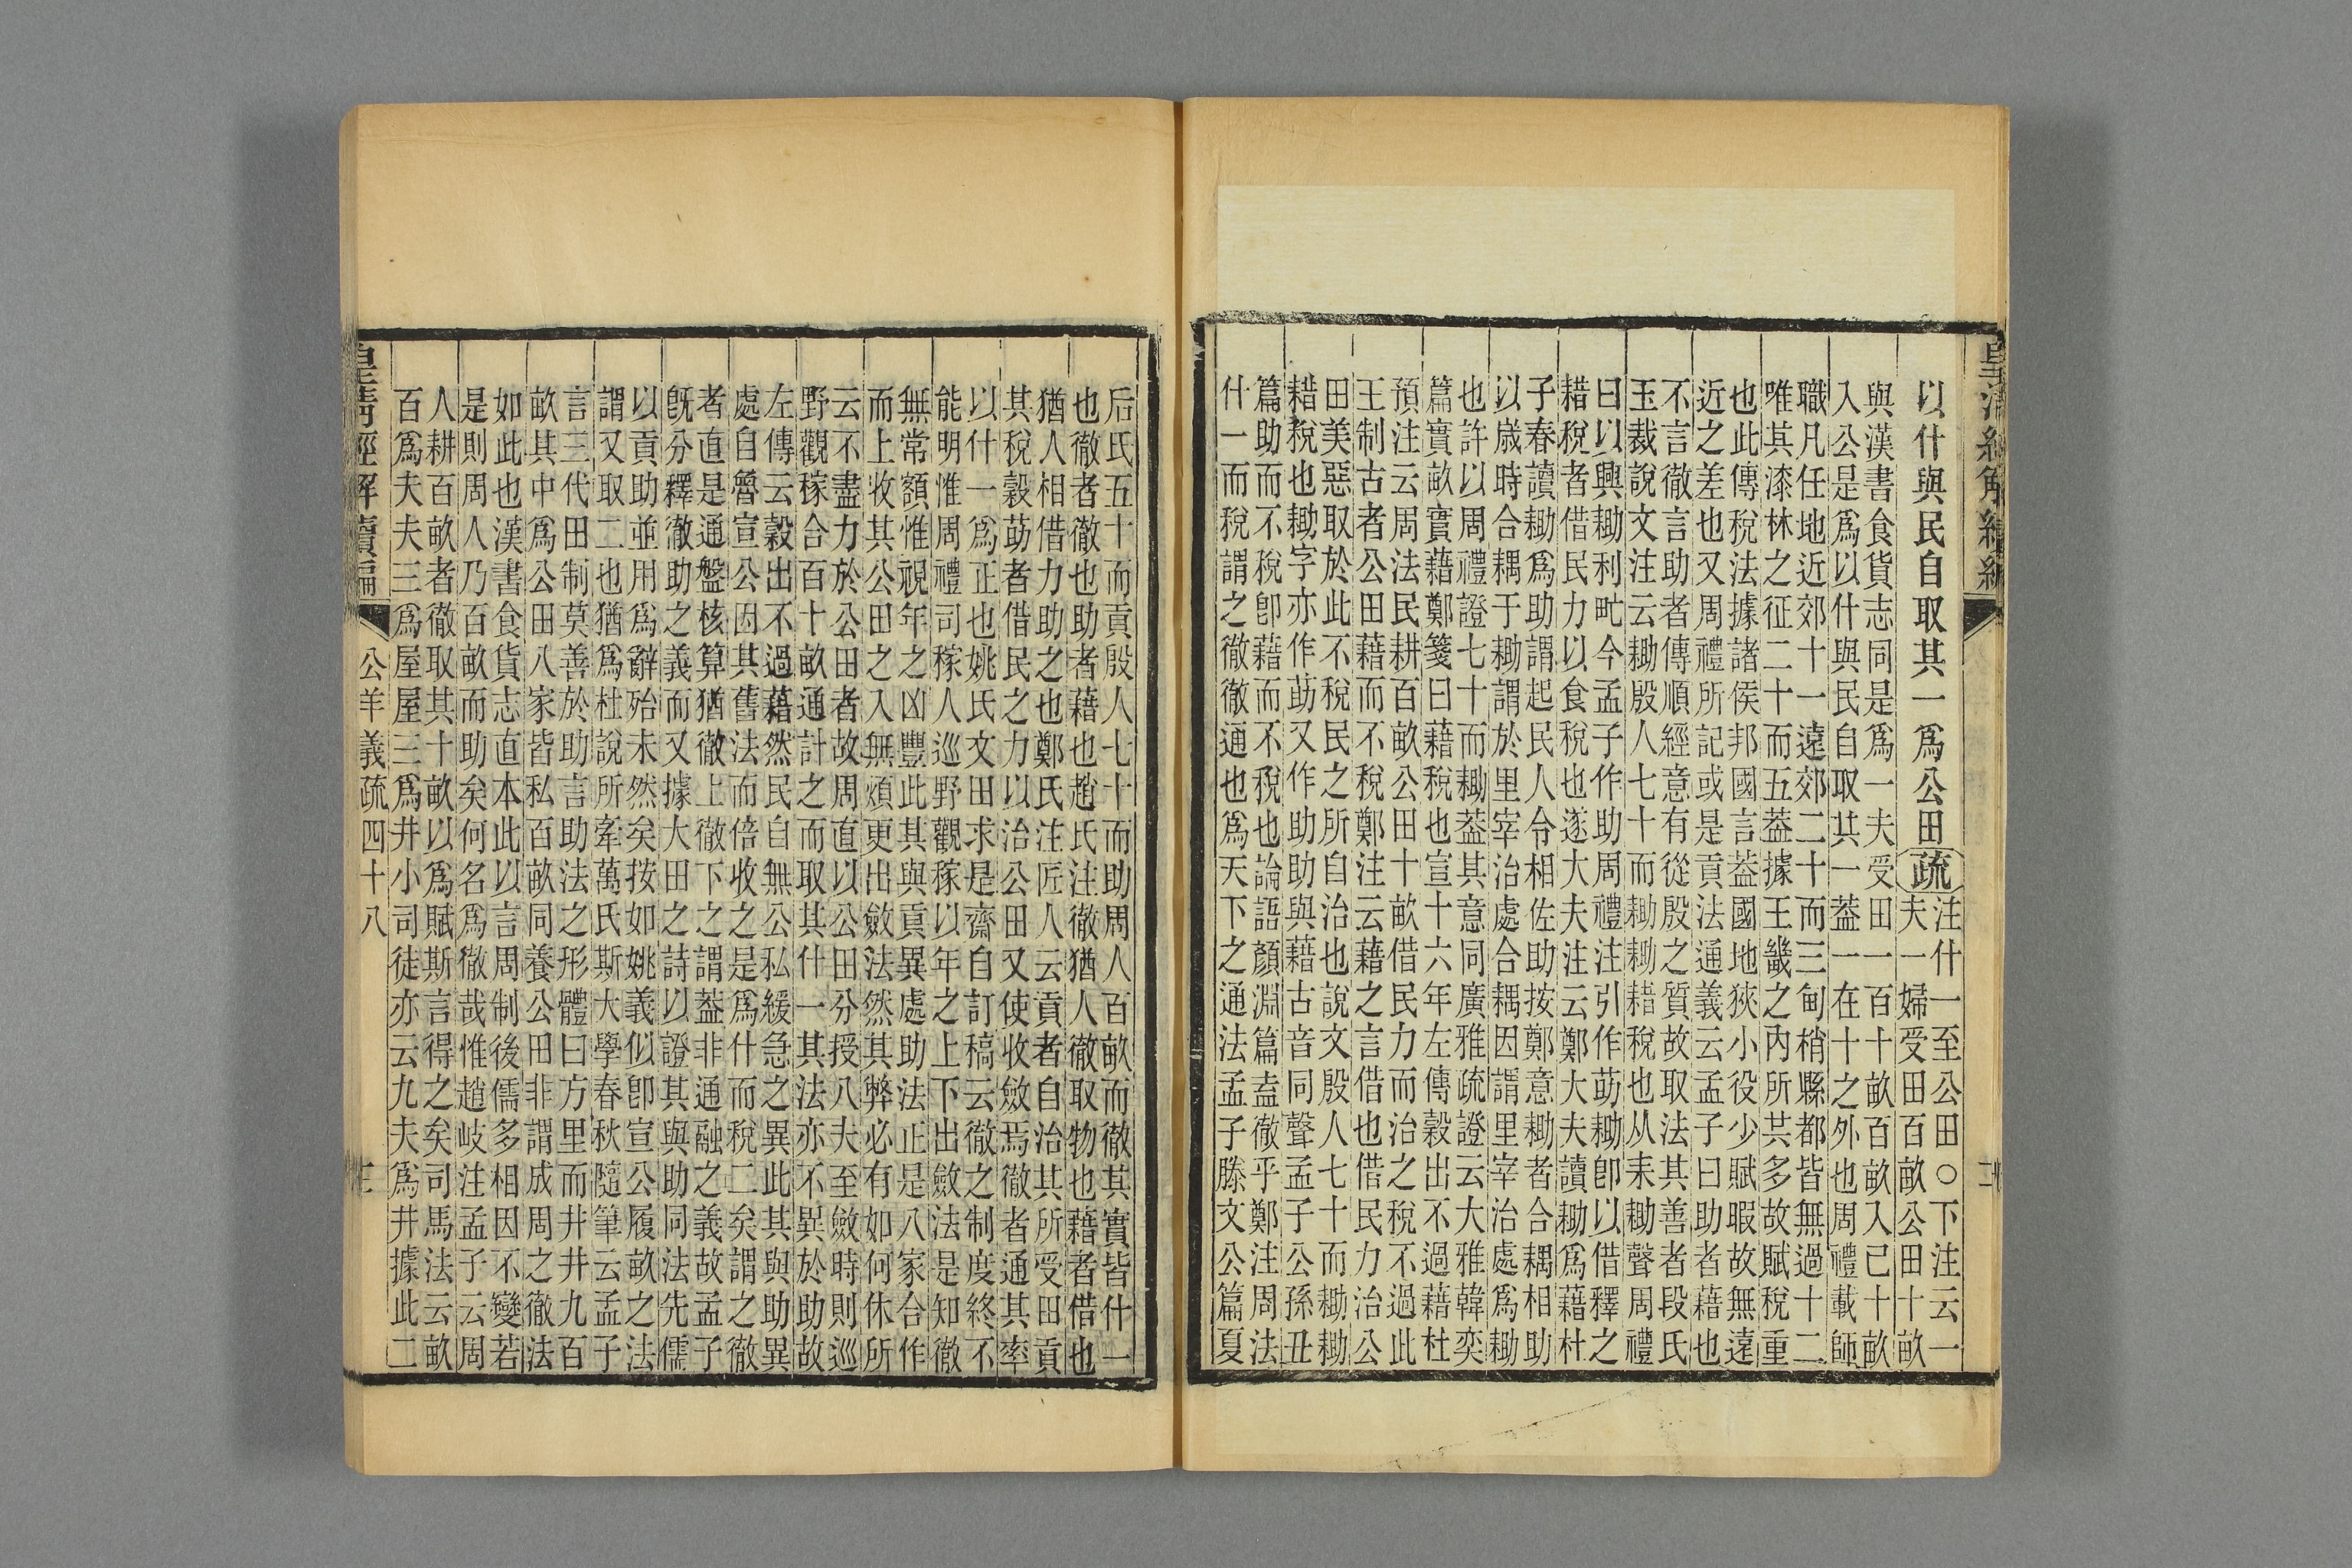 皇清經解續編
二
以什與民自取其一爲公田疏注什一至公田○下注云一
夫一婦受田百畝公田十畝
與漢書食貨志同是爲一夫受田一百十畝百畝入已十畝
入公是爲以什與民自取其一葢一在十之外也周禮載師
職凡任地近郊十一遠郊二十而三甸稍縣都皆無過十二
唯其漆林之征二十而五葢據王畿之內所共多故賦稅重
也此傳稅法據諸侯邦國言葢國地狹小役少賦暇故無遠
近之差也又周禮所記或是貢法通義云孟子曰助者藉也
不言徹言助者傳順經意有從殷之質故取法其善者段氏
玉裁說文注云耡殷人七十而耡耡耤稅也从耒助聲周禮
曰以興耡利甿今孟子作助周禮注引作莇耡卽以借釋之
耤稅者借民力以食稅也遂大夫注云鄭大夫讀耡爲藉杜
子春讀耡爲助謂起民人令相佐助按鄭意耡者合耦相助
以歲時合耦于耡謂於里宰治處合耦因謂里宰治處爲耡
也許以周禮證七十而耡葢其意同廣雅疏證云大雅韓奕
篇實畝實藉鄭箋曰藉稅也宣十六年左傳穀出不過藉杜
預注云周法民耕百畝公田十畝借民力而治之稅不過此
王制古者公田藉而不稅鄭注云藉之言借也借民力治公
田美惡取於此不稅民之所自治也說文殷人七十而耡耡
耤稅也耡字亦作莇又作助助與藉古音同聲孟子公孫丑
篇助而不稅卽藉而不稅也論語顏淵篇盍徹乎鄭注周法
什一而稅謂之徹徹通也爲天下之通法孟子滕文公篇夏
后氏五十而貢殷人七十而助周人百畝而徹其實皆什一
也徹者徹也助者藉也趙氏注徹猶人徹取物也藉者借也
猶人相借力助之也鄭氏注匠人云貢者自治其所受田貢
其稅穀莇者借民之力以治公田又使收斂焉徹者通其率
以什一爲正也姚氏文田求是齋自訂稿云徹之制度終不
能明惟周禮司稼人巡野觀稼以年之上下出斂法是知徹
無常額惟視年之凶豐此其與貢異處助法正是八家合作
而上收其公田之入無煩更出斂法然其弊必有如何休所
云不盡力於公田者故周直以公田分授八夫至斂時則巡
野觀稼合百十畝通計之而取其什一其法亦不異於助故
左傳云穀出不過藉然民自無公私緩急之異此其與助異
處自魯宣公因其舊法而倍收之是爲什而稅二矣謂之徹
者直是通盤核算猶徹上徹下之謂葢非通融之義故孟子
旣分釋徹助之義而又據大田之詩以證其與助同法先儒
以貢助並用爲辭殆未然矣按如姚義似卽宣公履畝之法
謂又取二也猶爲杜說所牽萬氏斯大學春秋隨筆云孟子
言三代田制莫善於助言助法之形體曰方里而井井九百
畝其中爲公田八家皆私百畝同養公田非謂成周之徹法
如此也漢書食貨志直本此以言周制後儒多相因不變若
是則周人乃百畝而助矣何名爲徹哉惟趙岐注孟子云周
人耕百畝者徹取其十畝以爲賦斯言得之矣司馬法云畝
百爲夫夫三爲屋屋三爲井小司徒亦云九夫爲井據此二
皇清經解續編
公羊義疏四十八